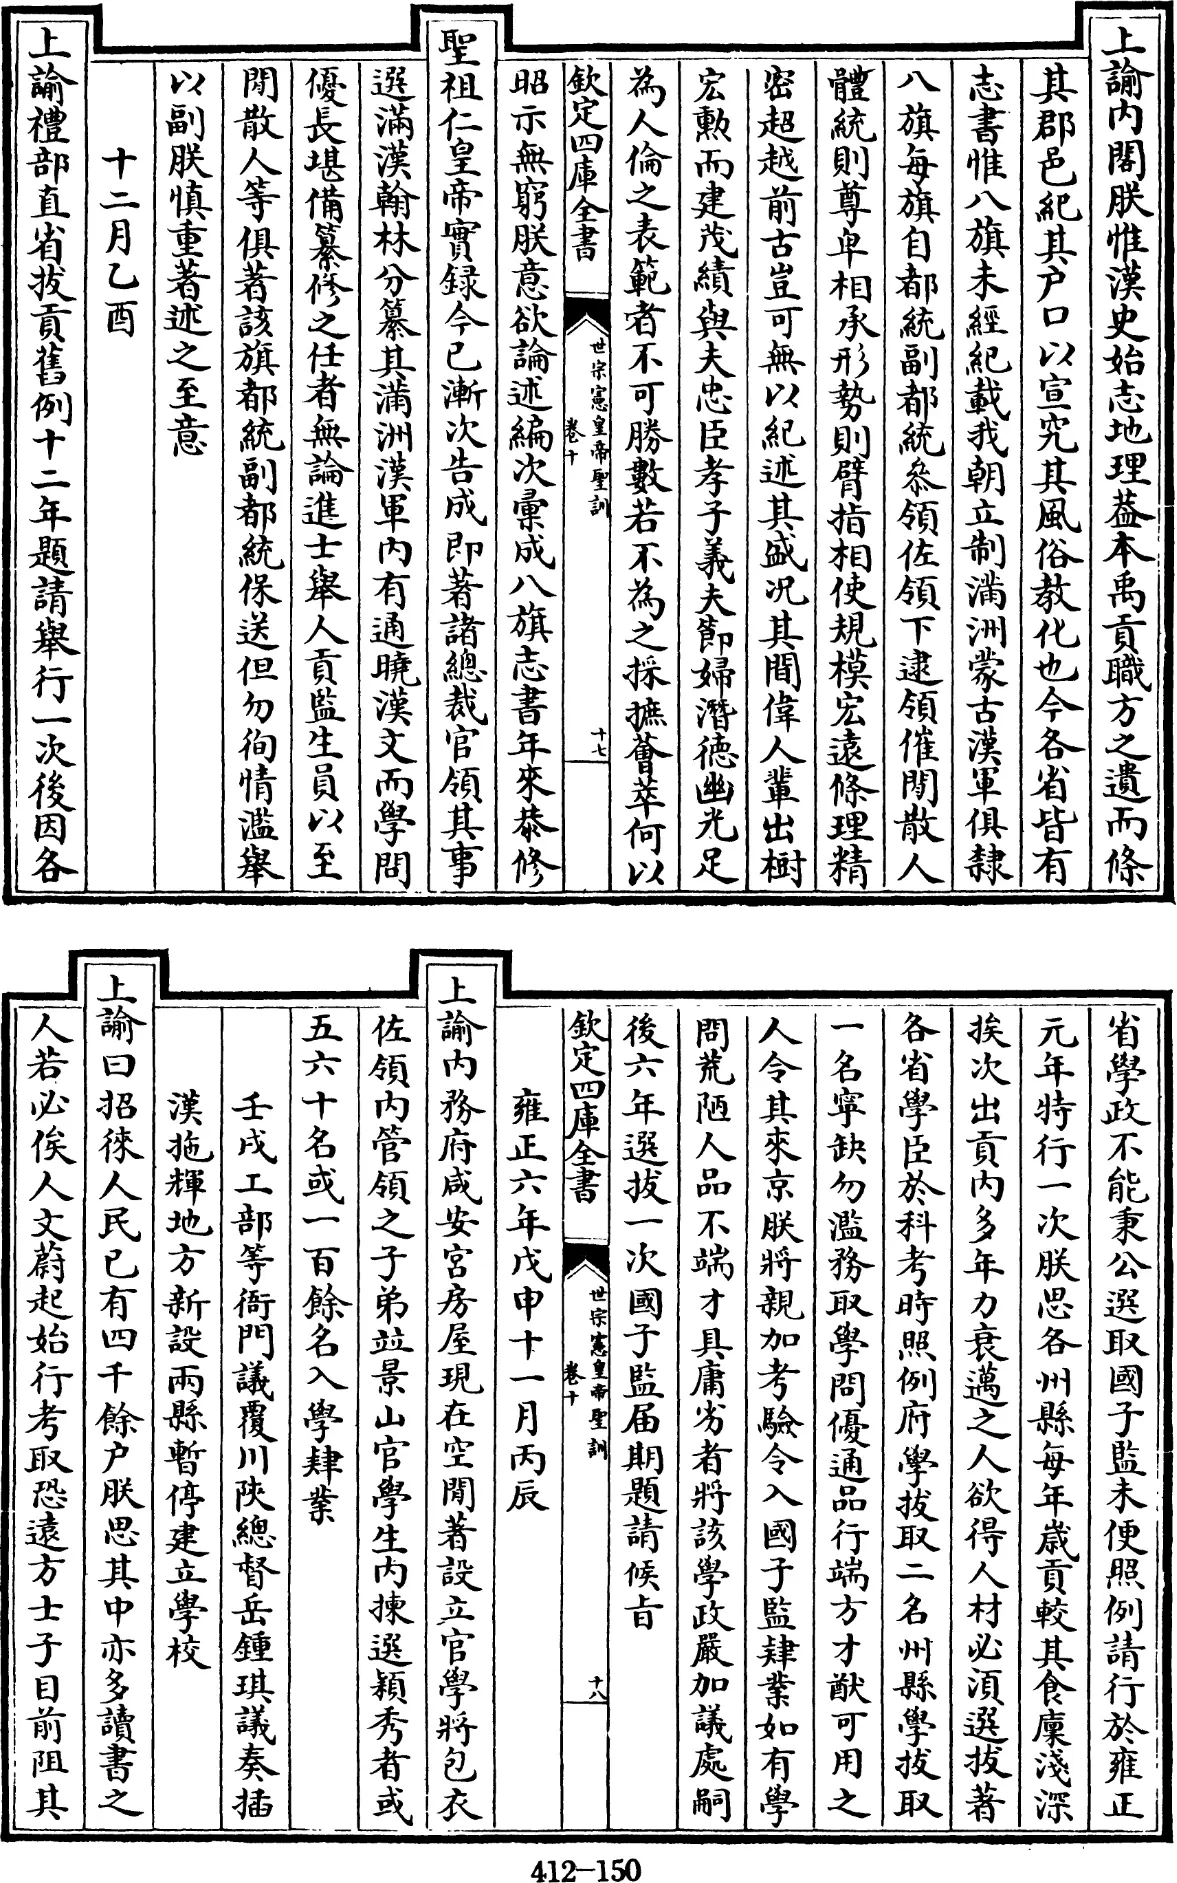 上諭内閣朕惟漢史始志地理葢本禹貢職方之遺而條
其郡邑紀其户口以宣究其風俗教化也今各省皆有
志書惟八旗未經紀載我朝立制滿洲蒙古漢軍俱隸
八旗每旗自都統副都統叅領佐領下逮領催閒散人
體統則尊卑相承形勢則臂指相使規模宏遠條理精
密超越前古豈可無以紀述其盛况其間偉人輩出樹
宏勲而建茂績與夫忠臣孝子義夫節婦潛德幽光足
為人倫之表範者不可勝數若不為之採摭薈萃何以
欽定四庫全書
世宗憲皇帝聖訓
卷十
十七
昭示無窮朕意欲論述編次彙成八旗志書年來恭修
聖祖仁皇帝實録今已漸次告成即著諸總裁官領其事
選滿漢翰林分纂其滿洲漢軍内有通曉漢文而學問
優長堪備纂修之任者無論進士舉人貢監生員以至
閒散人等俱著該旗都統副都統保送但勿徇情濫舉
以副朕慎重著述之至意
十二月乙酉
上諭禮部直省拔貢舊例十二年題請舉行一次後因各
省學政不能秉公選取國子監未便照例請行於雍正
元年特行一次朕思各州縣每年歲貢較其食廩淺深
挨次出貢内多年力衰邁之人欲得人材必須選拔著
各省學臣於科考時照例府學拔取二名州縣學拔取
一名寧缺勿濫務取學問優通品行端方才猷可用之
人令其來京朕將親加考驗令入國子監肄業如有學
問荒陋人品不端才具庸劣者將該學政嚴加議處嗣
後六年選拔一次國子監届期題請候旨
欽定四庫全書
世宗憲皇帝聖訓
卷十
十八
雍正六年戊申十一月丙辰
上諭内務府咸安宮房屋現在空閒著設立官學將包衣
佐領内管領之子弟並景山官學生内揀選穎秀者或
五六十名或一百餘名入學肄業
壬戌工部等衙門議覆川陜總督岳鍾琪議奏插
漢拖輝地方新設兩縣暫停建立學校
上諭曰招徠人民已有四千餘户朕思其中亦多讀書之
人若必俟人文蔚起始行考取恐遠方士子目前阻其
412-150